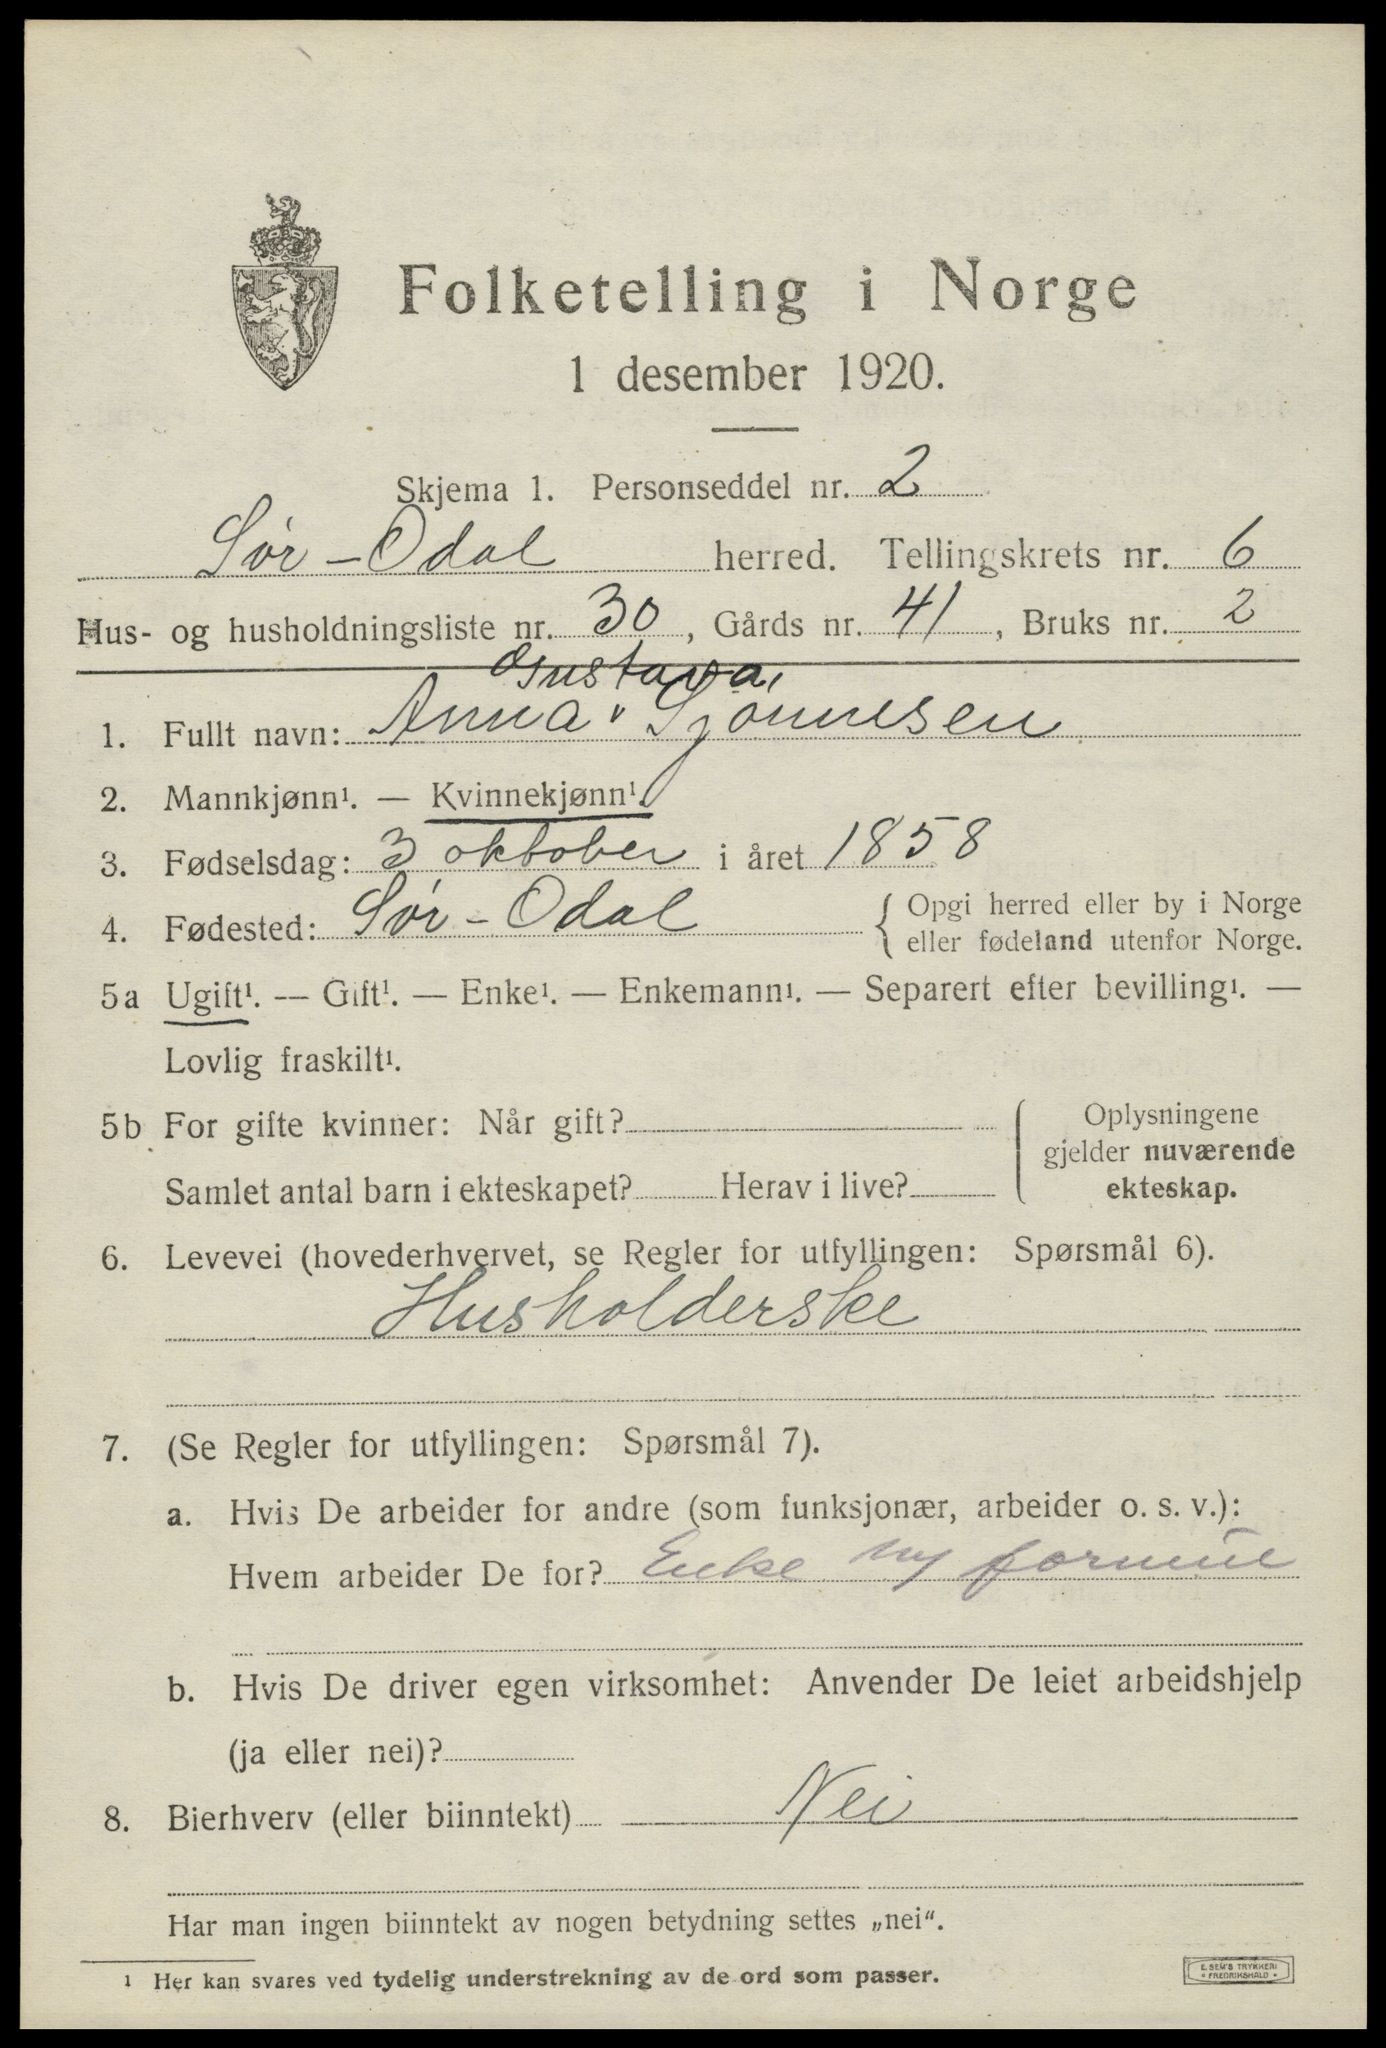 Folketelling i Norge
1 desember 1920.
Skjema 1. Personseddel nr. 2
Sør-Odal herred. Tellingskrets nr. 6
Hus- og husholdningsliste nr. 30, Gårds nr. 41, Bruks nr. 2
Gustava,
1. Fullt navn: Anna Sjønnesen
2. Mannkjønn¹. — Kvinnekjønn¹.
3. Fødselsdag: 3 oktober i året 1858
4. Fødested: Sør-Odal { Opgi herred eller by i Norge
eller fødeland utenfor Norge.
5a Ugift¹. — Gift¹. — Enke¹. — Enkemann¹. — Separert efter bevilling¹. —
Lovlig fraskilt¹.
5b For gifte kvinner: Når gift?
Samlet antal barn i ekteskapet? Herav i live?
Oplysningene
gjelder nuværende
ekteskap.
6. Levevei (hovederhvervet, se Regler for utfyllingen: Spørsmål 6).
Husholderske
7. (Se Regler for utfyllingen: Spørsmål 7).
a. Hvis De arbeider for andre (som funksjonær, arbeider o. s. v.):
Hvem arbeider De for? Enke
b. Hvis De driver egen virksomhet: Anvender De leiet arbeidshjelp
(ja eller nei)?
8. Bierhverv (eller biinntekt) Nei
Har man ingen biinntekt av nogen betydning settes „nei“.
¹ Her kan svares ved tydelig understrekning av de ord som passer.
E. SEM'S TRYKKERI
• FREDRIKSHALD •